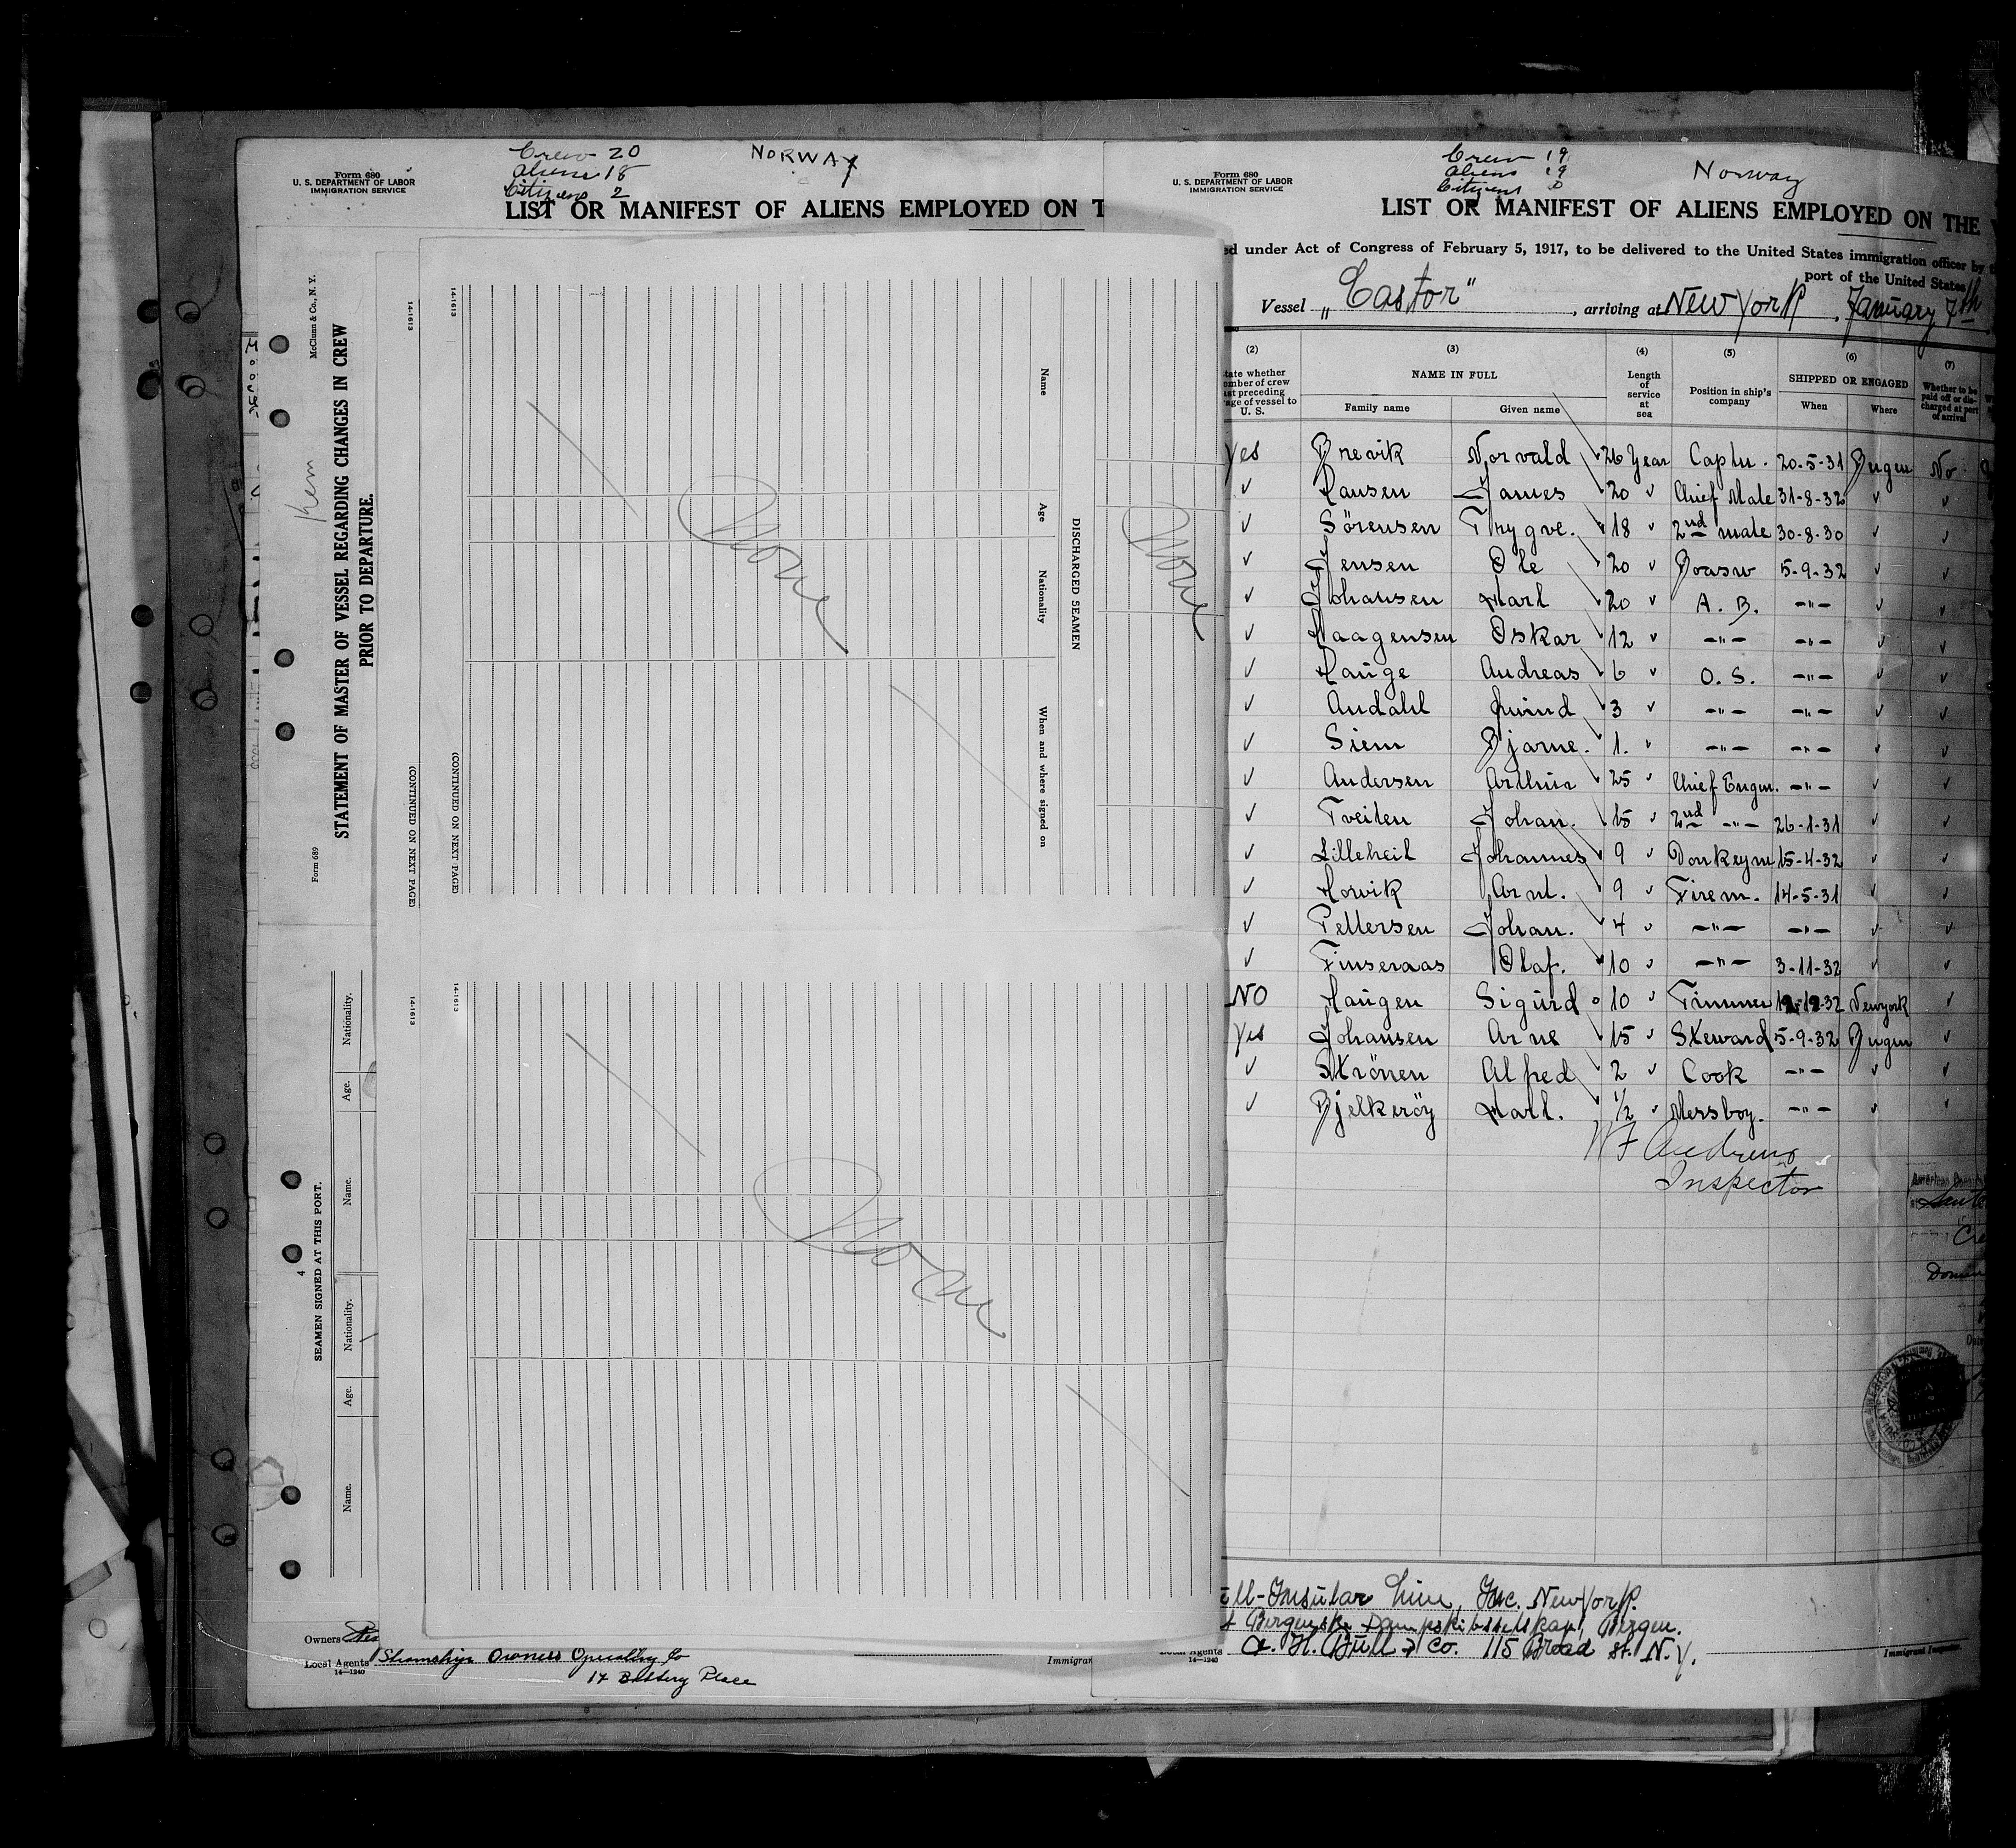 Form 680
U. S. DEPARTMENT OF LABOR
IMMIGRATION SERVICE
Crew 20
Aliens 18
Citizens 2
NORWAY
LIST OR MANIFEST OF ALIENS EMPLOYED ON T
McClunn & Co., N. Y.
Form 689
STATEMENT OF MASTER OF VESSEL REGARDING CHANGES IN CREW
PRIOR TO DEPARTURE.
14-1613
(CONTINUED ON NEXT PAGE)
14-1613
(CONTINUED ON NEXT PAGE)
Name Age Nationality When and where signed on
DISCHARGED SEAMEN
None
None
4
SEAMEN SIGNED AT THIS PORT.
Name. Age. Nationality. Name. Age. Nationality.
14-1613
14-1613
None
Owners
Local Agents Steamship Owners Operating Co
14—1240
17 Battery Place
Immigran
Form 680
U. S. DEPARTMENT OF LABOR
IMMIGRATION SERVICE
Crew 19
Aliens 19
Citizens 0
Norway
LIST OR MANIFEST OF ALIENS EMPLOYED ON THE
ed under Act of Congress of February 5, 1917, to be delivered to the United States immigration officer by
port of the United States
Vessel „Castor“, arriving at New York, January 7th
(2) (3) (4) (5) (6) (7)
tate whether
ember of crew
ast preceding
age of vessel to
U. S.
NAME IN FULL
Family name Given name
Length
of
service
at
sea
Position in ship's
company
SHIPPED OR ENGAGED
When Where
Whether to be
paid off or dis-
charged at port
of arrival
Yes Brevik Norvald 26 Year Captn. 20-5-31 Bergen No
✓ Hansen James 20 ✓ Chief Mate 31-8-32 ✓ ✓
✓ Sörensen Trygve. 18 ✓ 2nd mate 30-8-30 ✓ ✓
✓ Jensen Ole 20 ✓ Boasw 5-9-32 ✓ ✓
✓ Johansen Karl 20 ✓ A. B. -"- ✓ ✓
✓ Haagensen Oskar 12 ✓ -"- -"- ✓ ✓
✓ Hauge Andreas 6 ✓ O. S. -"- ✓ ✓
✓ Andahl 3 ✓ -"- -"- ✓ ✓
✓ Siem Bjarne. 1. ✓ -"- -"- ✓ ✓
✓ Andersen Arthur 25 ✓ Chief Engn. -"- ✓ ✓
✓ Tveiten Johan. 15 ✓ 2nd -"- 26-1-31 ✓ ✓
✓ Lilleheil Johannes 9 ✓ Donkeym 15-4-32 ✓ ✓
✓ Hovik Arnt. 9 ✓ Firem. 14-5-31 ✓ ✓
✓ Pettersen Johan. 4 ✓ -"- -"- ✓ ✓
✓ Finseraas Olaf. 10 ✓ -"- 3-11-32 ✓ ✓
NO Haugen Sigurd 10 ✓ Trimmer 12-12-32 Newyork ✓
Yes Johansen Arne 15 ✓ Steward 5-9-32 Bergen ✓
✓ Strönen Alfred 2 ✓ Cook -"- ✓ ✓
✓ Bjelkeröy Karl. 1/2 ✓ Messboy. -"- ✓ ✓
W F Andrews
Inspector
ull-Insular Line, Inc. New York.
Bergenske Dampskibsselskap, Bergen.
Local Agents A. H. Bull & Co. 115 Broad st. N. Y.
14—1240
Immigrant Inspector.